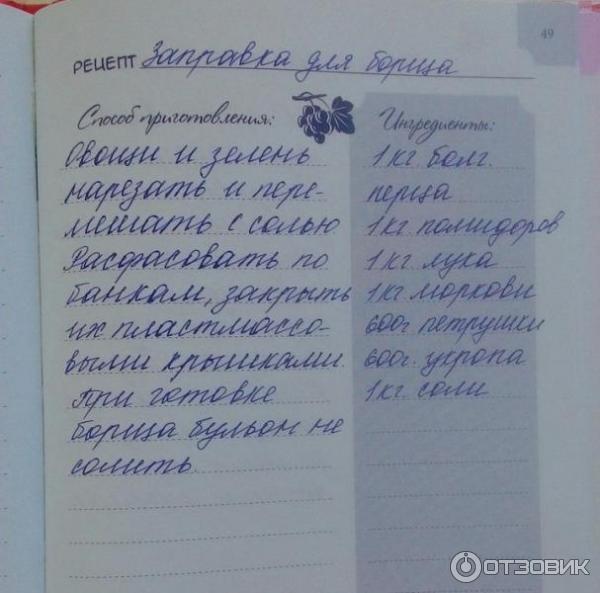 49
РЕЦЕПТ Заправка для борща
Способ приготовления:
Овощи и зелень
нарезать и пере-
мешать с солью
Расфасовать по
банкам, закрыть
их пластмассо-
выми крышками.
При готовке
борща бульон не
солить.
Ингредиенты:
1 кг. болг.
перца
1 кг помидоров
1 кг лука
1 кг моркови
600г петрушки
600г. укропа
1 кг соли
ОТЗОВИК